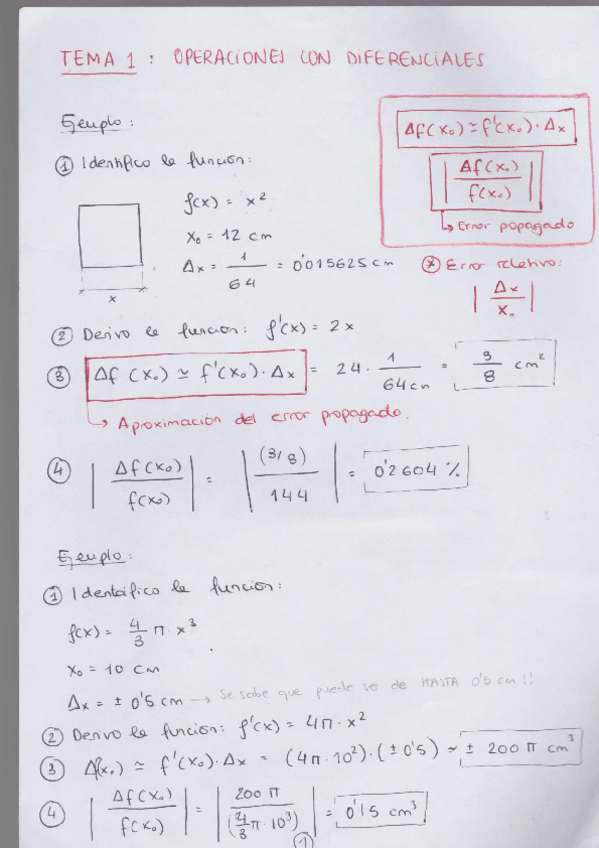 TEMA 1 : OPERACIONES CON DIFERENCIALES
Ejemplo :
Δf(x₀) ≃ f'(x₀) · Δx
| Δf(x₀) / f(x₀) |
↳ Error popagado
① Identifico la función:
f(x) = x²
x₀ = 12 cm
Δx = 1/64 = 0'015625 cm
x
* Error relativo:
| Δx / x₀ |
② Derivo la función: f'(x) = 2x
③ Δf (x₀) ≃ f'(x₀) · Δx = 24 · 1/64 cm = 3/8 cm²
↳ Aproximación del error propagado.
④ | Δf(x₀) / f(x₀) | = | (3/8) / 144 | = 0'2604 %
Ejemplo :
① Identifico la función:
f(x) = 4/3 π x³
x₀ = 10 cm
Δx = ± 0'5 cm → Se sabe que puede ser de HASTA 0'5 cm!!
② Derivo la función: f'(x) = 4π · x²
③ Δf(x₀) ≃ f'(x₀) · Δx = (4π · 10²) · (± 0'5) ≃ ± 200 π cm³
④ | Δf(x₀) / f(x₀) | = | 200 π / (4/3 π · 10³) | = 0'15 cm³
①